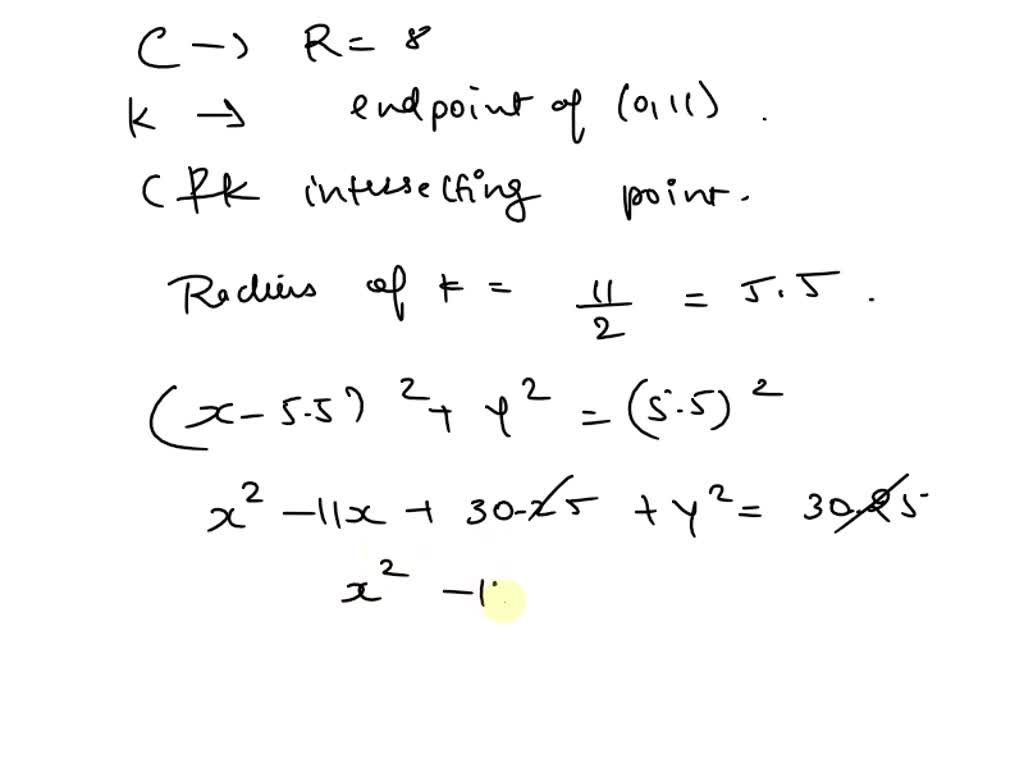 C → R = 8
k → endpoint of (0,11).
C & k intersecting point.
Radius of k = 11/2 = 5.5.
(x - 5.5)² + y² = (5.5)²
x² - 11x + 30.25 + y² = 30.25
x² - 11